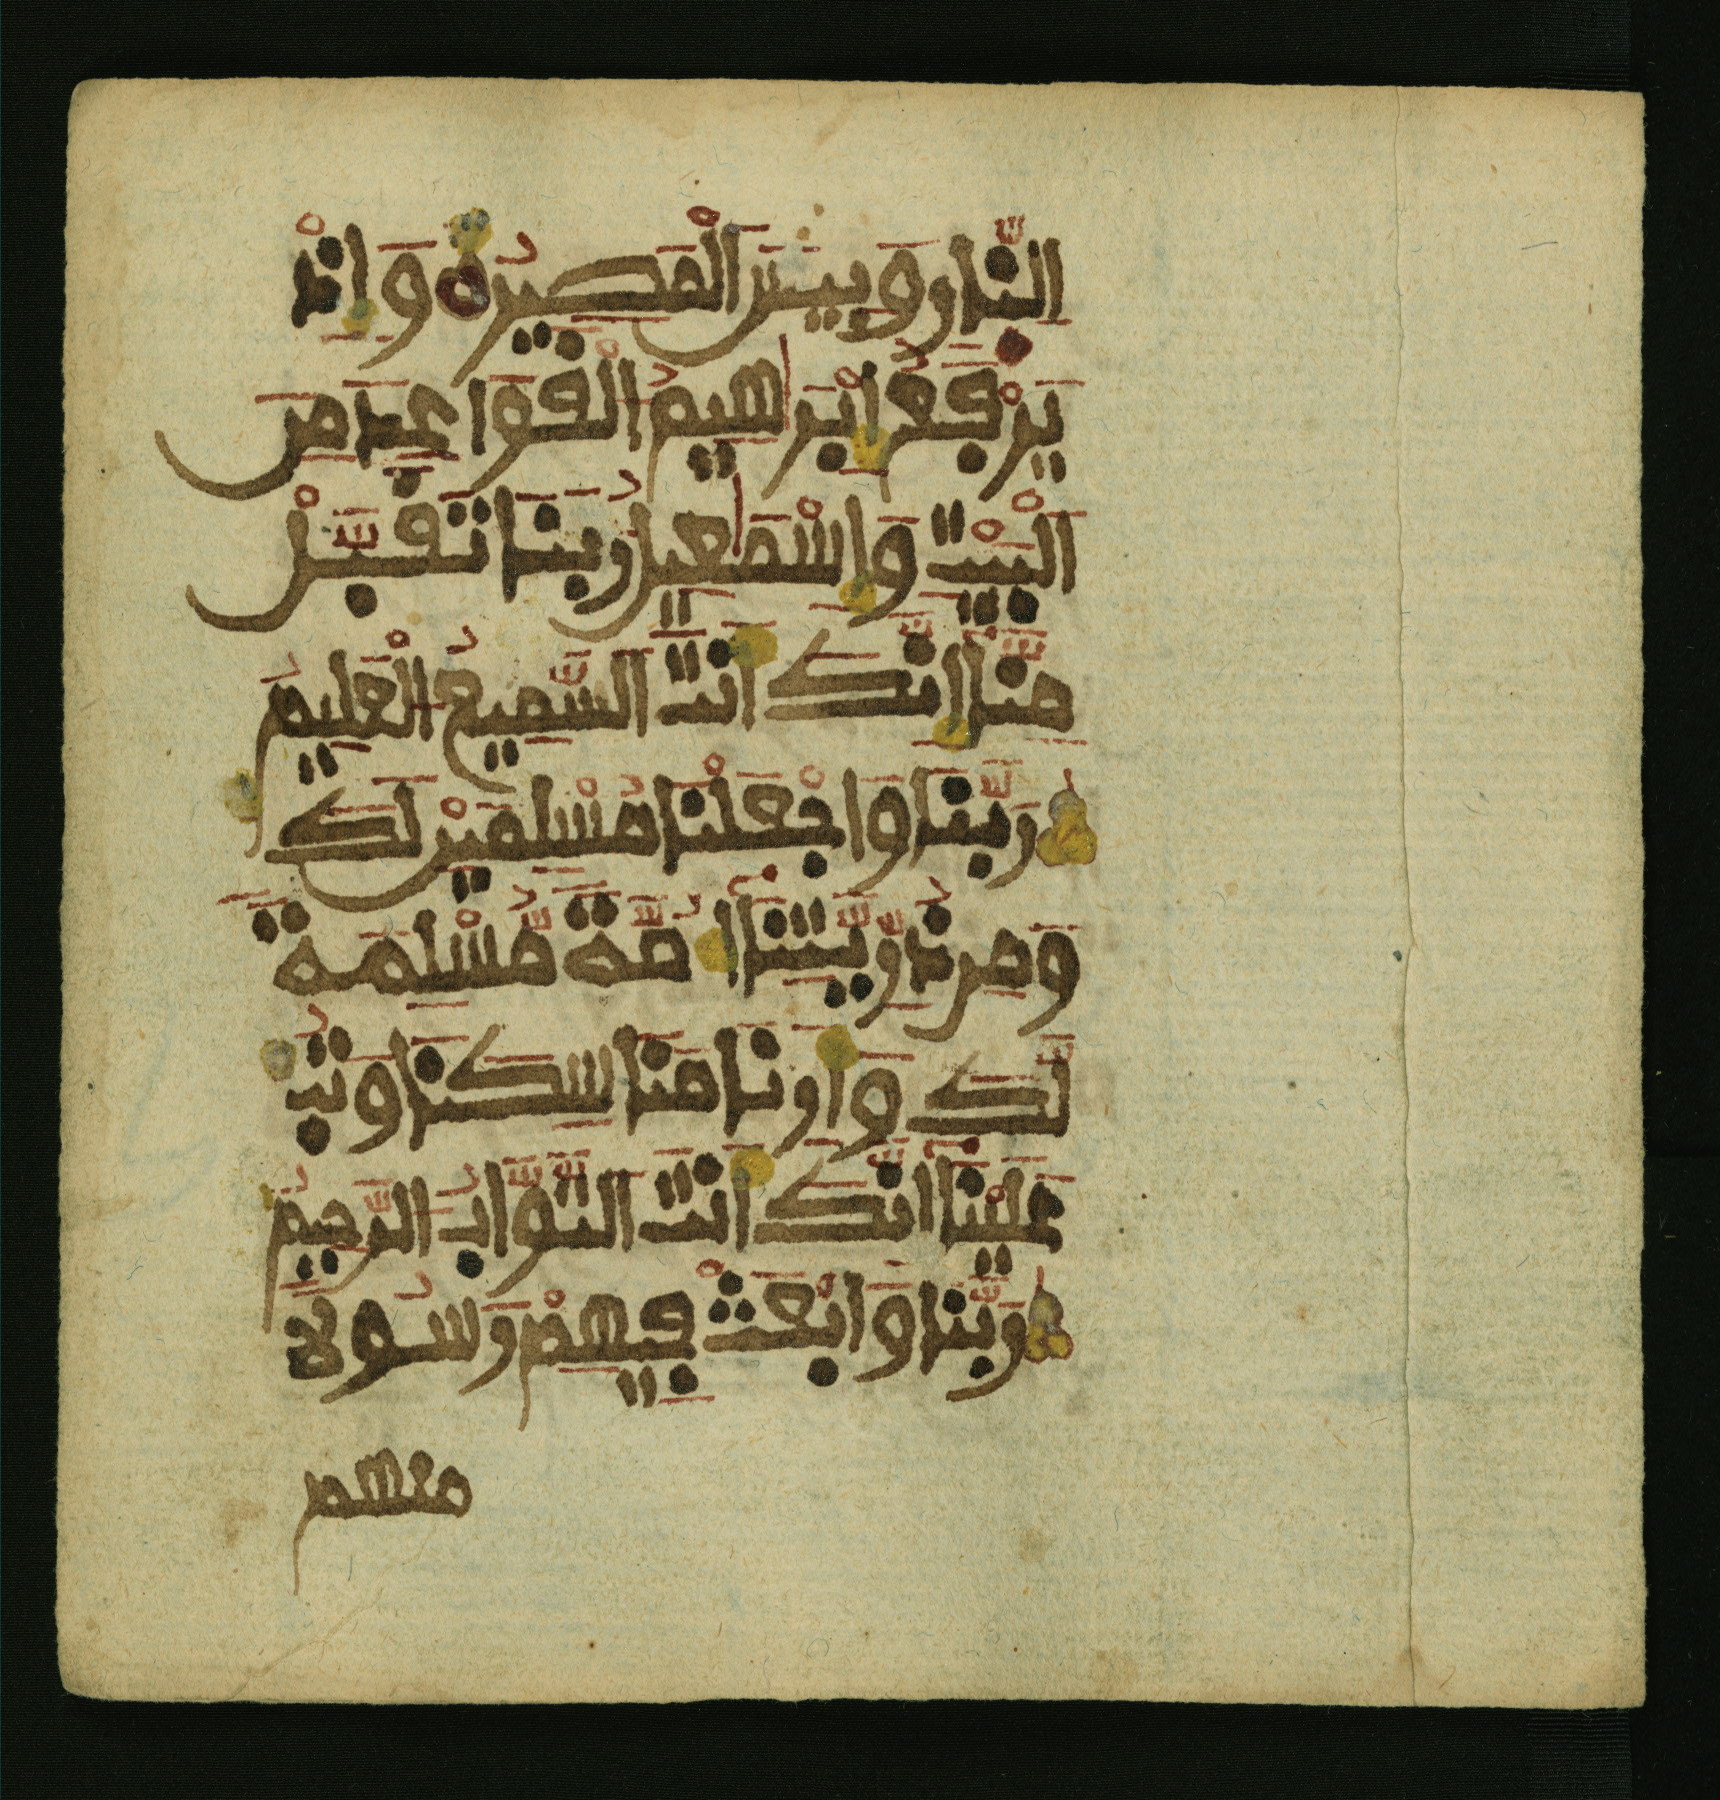 النّارِ وَبِيسَ الْمَصِيرُ وَإِذْ
يَرْفَعُ إِبْرَٰهِيمُ الْقَوَاعِدَ مِنَ
الْبَيْتِ وَإِسْمَٰعِيلُ رَبَّنَا تَقَبَّلْ
مِنَّا إِنَّكَ أَنتَ السَّمِيعُ الْعَلِيمُ
رَبَّنَا وَاجْعَلْنَا مُسْلِمَيْنِ لَكَ
وَمِن ذُرِّيَّتِنَا أُمَّةً مُّسْلِمَةً
لَّكَ وَأَرِنَا مَنَاسِكَنَا وَتُبْ
عَلَيْنَا إِنَّكَ أَنتَ التَّوَّابُ الرَّحِيمُ
رَبَّنَا وَابْعَثْ فِيهِمْ رَسُولًا
منهم